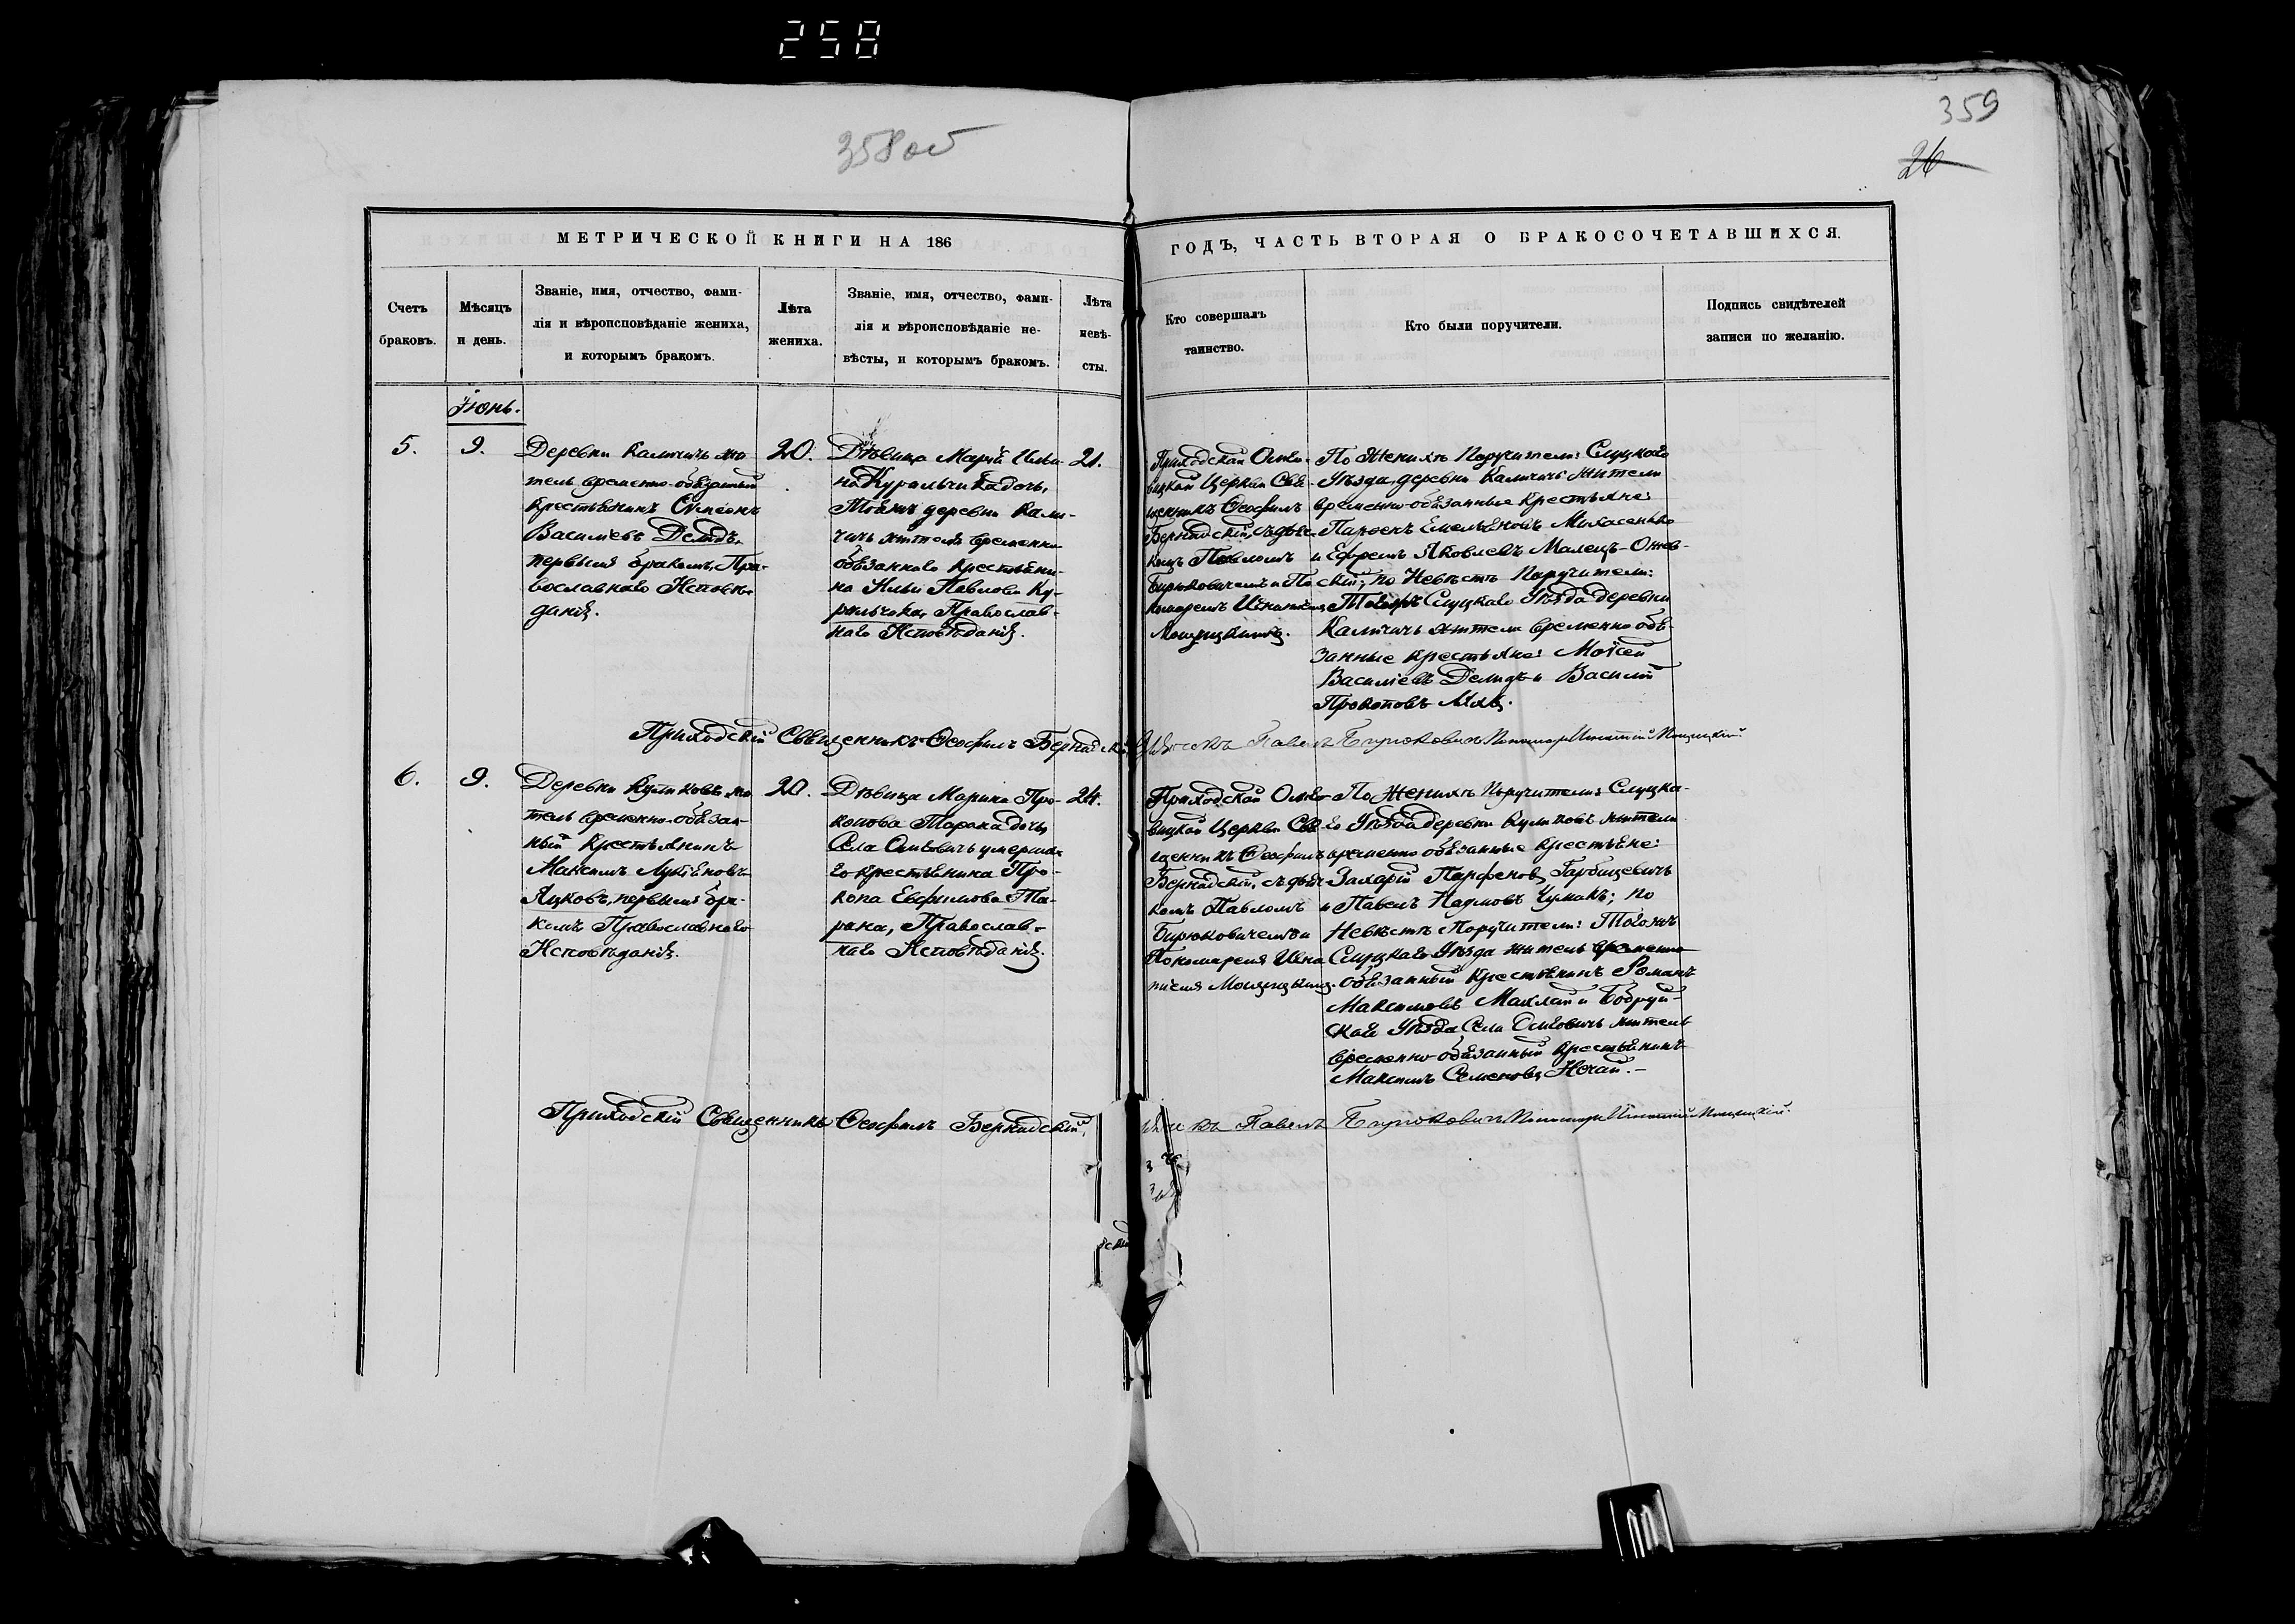 258
358 об
359
26
МЕТРИЧЕСКОЙ КНИГИ НА 186
ГОДЪ, ЧАСТЬ ВТОРАЯ О БРАКОСОЧЕТАВШИХСЯ.
Счетъ
браковъ.
Мѣсяцъ
и день.
Званіе, имя, отчество, фами-
лія и вѣроисповѣданіе жениха,
и которымъ бракомъ.
Лѣта
жениха.
Званіе, имя, отчество, фами-
лія и вѣроисповѣданіе не-
вѣсты, и которымъ бракомъ.
Лѣта
невѣ-
сты.
Кто совершалъ
таинство.
Кто были поручители.
Подпись свидѣтелей
записи по желанію.
Іюнь.
5.
9.
Деревни Каличичь жи
тель временно-обязанный
Крестьянинъ Симеонъ
Василіевъ Демидъ,
первымъ бракомъ, Пра-
вославнаго Исповѣ-
данія.
20.
Дѣвица Марія Ильи-
на Куральчика дочь,
Тойжъ деревни Кали-
чичь жителя временно
обязаннаго крестьяни-
на Ильи Павлова Ку-
ральчика, Православ-
наго Исповѣданія.
21.
Приходской
вицкой Церкви Свя-
щенникъ Ѳеофилъ
Бернадскій съ дьяч-
комъ Павломъ
Бирюковичемъ и По
номаремъ Игнатіемъ
По Женихѣ Поручители: Слуцкаго
Уѣзда, деревни Каличичь жители
временно-обязанные Крестьяне:
Парфенъ Емельяновъ
и Ефремъ Яковлевъ
по Невѣстѣ Поручители:
Тогожъ Слуцкаго Уѣзда деревни
Каличичь жители временно обя
занные крестьяне: Моісей
Василіевъ Демидъ и Василій
Прокоповъ
Приходскій Священникъ Ѳеофилъ Бернадскій
Дьячекъ Павелъ Бирюковичъ Пономарь Игнатій
6.
9.
Деревни Куликовъ жи
тель временно-обязан-
ный Крестьянинъ
Максимъ Лукьяновъ
Яцковъ, первымъ бра-
комъ Православнаго
Исповѣданія.
20.
Дѣвица Марина Про-
копова Тарана дочь,
Села Олговичь умерша-
го крестьянина Про-
копа Евфимова Та-
рана, Православ-
наго Исповѣданія.
24.
Приходской
вицкой Церкви Свя
щенникъ Ѳеофилъ
Бернадскій, съ дьяч
комъ Павломъ
Бирюковичемъ и
Пономаремъ Игна
тіемъ
По Женихѣ Поручители: Слуцка-
го Уѣзда деревни Куликовъ жители
временно обязанные крестьяне:
Захарій Парфеновъ Гарбацевичъ
и Павелъ Наумовъ Чумакъ; по
Невѣстѣ Поручители: Тогожъ
Слуцкаго Уѣзда житель временно
обязанный крестьянинъ Романъ
Максимовъ Махлай и Бобруй-
скаго Уѣзда Села Олговичь житель
временно-обязанный крестьянинъ
Максимъ Семеновъ Нечай.-
Приходскій Священникъ Ѳеофилъ Бернадскій,
Дьячекъ Павелъ Бирюковичъ Пономарь Игнатій